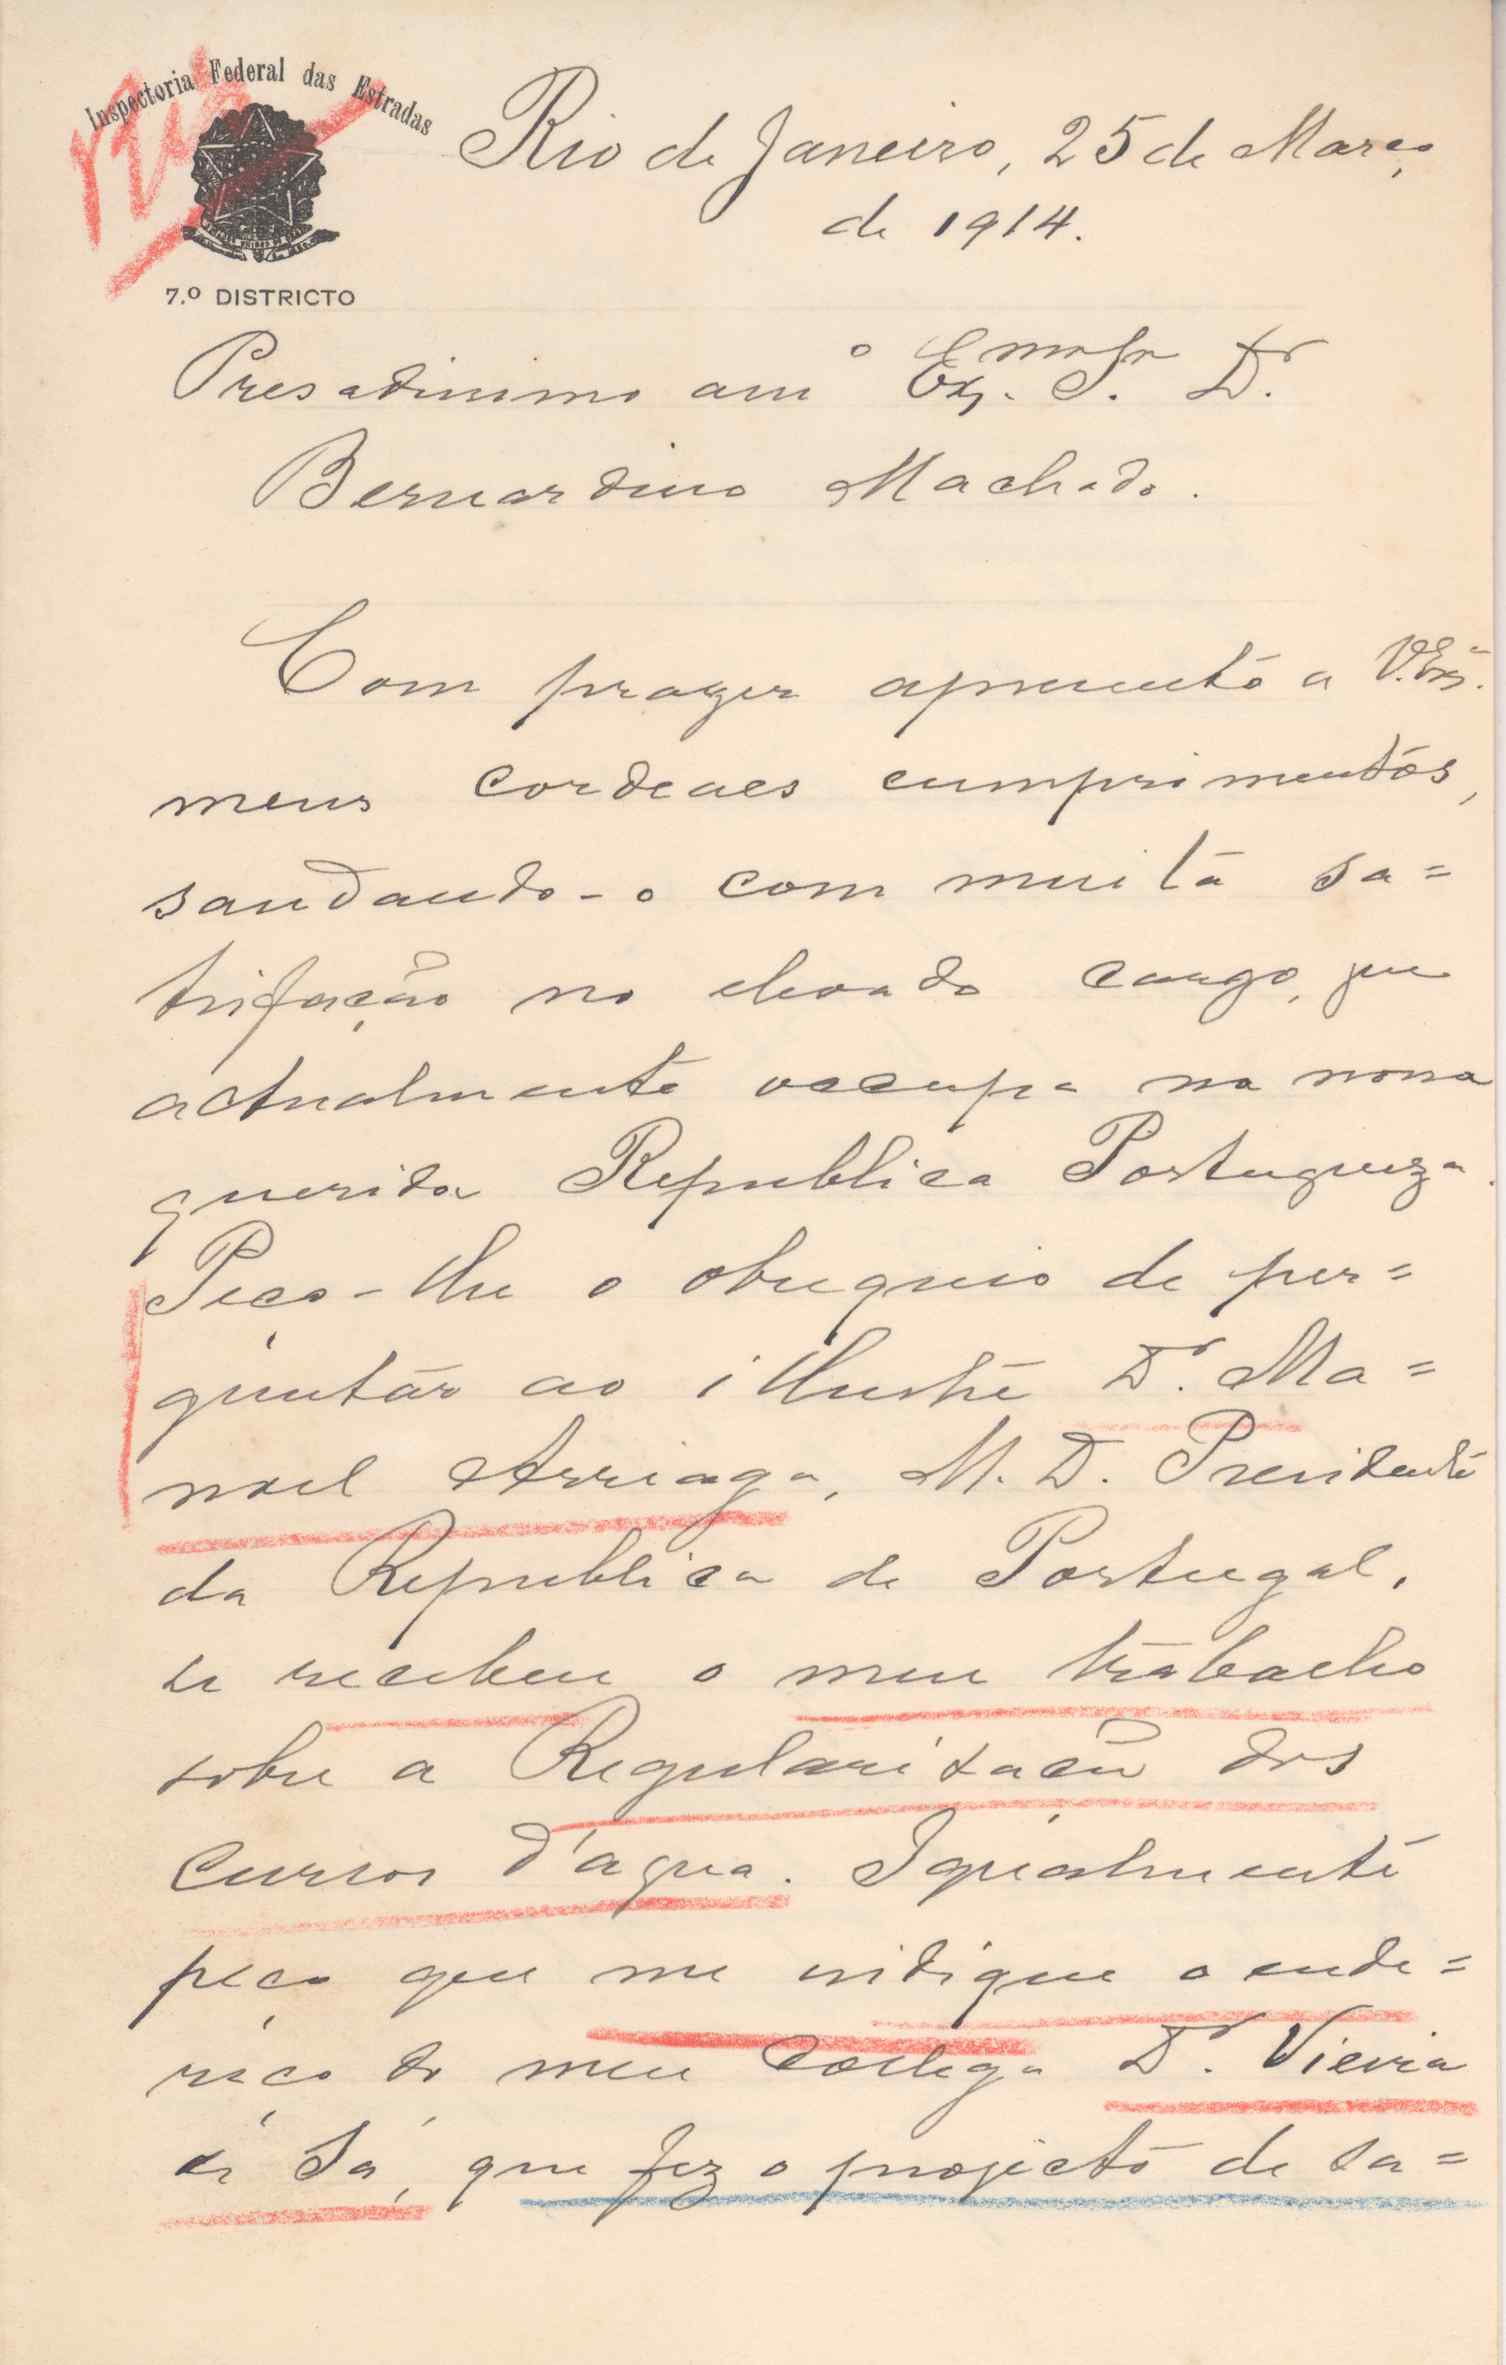 Inspectoria Federal das Estradas
7.º DISTRICTO
Rio de Janeiro, 25 de Março
de 1914.
Presadissimo amº Exmo Sr. Dr.
Bernardino Machado.
Com prazer apresento a V. Exª.
meus cordeaes cumprimentos,
saudando-o com muita sa=
tisfação no elevado cargo, que
actualmente occupa na nossa
querida Republica Portugueza.
Peço-lhe o obsequio de per=
guntar ao illustre Dr. Ma=
noel Arriaga, M. D. Presidente
da Republica de Portugal,
se recebeu o meu trabalho
sobre a Regularisação dos
cursos d'agua. Igualmente
peço que me indique o ende=
reço do meu collega Dr. Vieira
de Sá, que fez o projecto de sa=